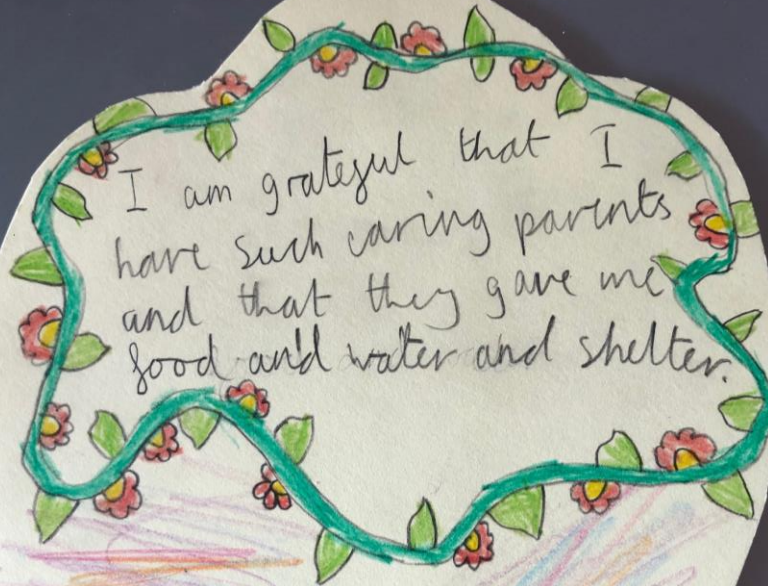 I am grateful that I
have such caring parents
and that they gave me
food and water and shelter.